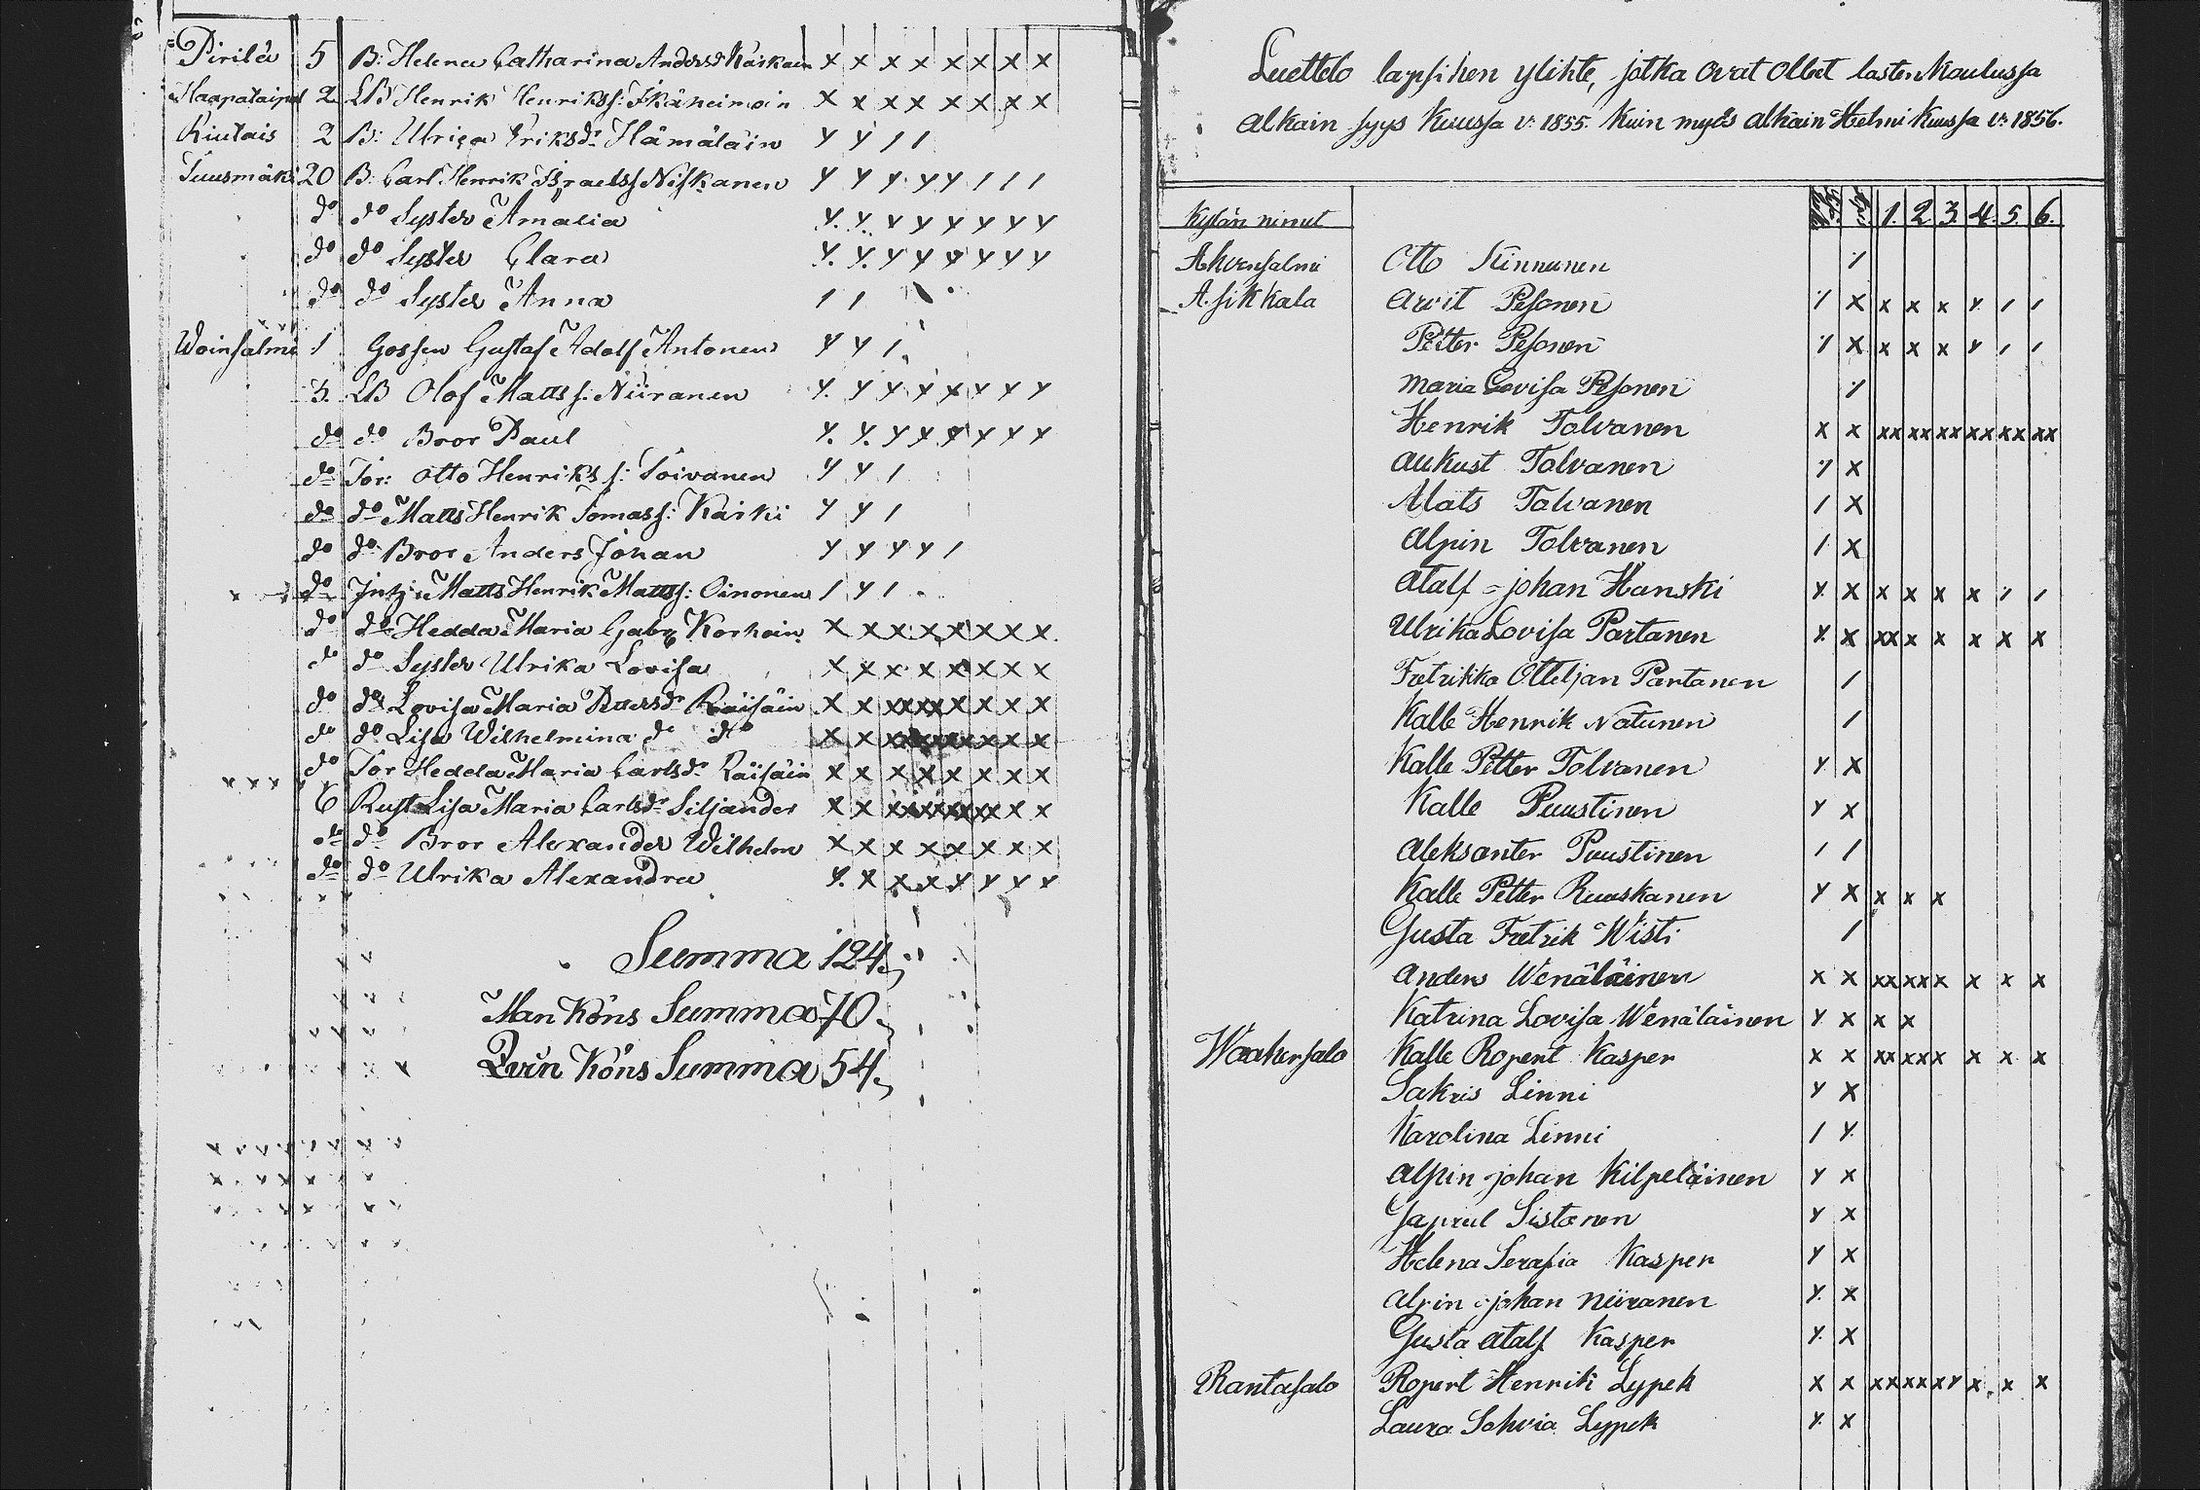 Pirilä 5 B: Helena Catharina Andersdr Käskain x x x x x x x x
Haapataipal 2 LB Henrik Henrikss: Ikäheimoin x x x x x x x x
Riutais 2 B: Ulrica Eriksdr Hämäläin y y / /
Tuusmäki 20 B: Carl Henrik Israelss Niskanen y y y y y / / /
do do Syster Amalia y. y. y y y y y y
do do Syster Clara y. y. y y y y y y
do do Syster Anna / /
Woinsalmi 1 Gossen Gustaf Adolf Antonen y y /
3. LB Olof Matts s: Niiranen y. y y y x y y y
do do Bror Paul y. y. y y y y y y
do Tor: Otto Henriks s: Toivanen y y /
do do Matts Henrik Tomass: Käiki y y /
do do Bror Anders Johan y y y y /
do Inh: Matts Henrik Mattss: Oinonen / y /
do do Hedda Maria Gabr Korhoin x x x x x x x x
do do Syster Ulrika Lovisa x x x x x x x x
do do Lovisa Maria Pettersdr Räisäin x x xx xx x x x x
do do Lisa Wilhelmina do do x x xx xx xx x x x
do Tor Hedda Maria Carlsdr Räisäin x x x x x x x x
6 Rust Lisa Maria Carlsdr Siljander x x xx xx xx xx x x
do do Bror Alexander Wilhelm x x x x x x x x
do do Ulrika Alexandra y. x x x y y y y
Summa 124
Man Köns Summa 70
Qvin Köns Summa 54
Luettelo lapsihen ylihte, jotka ovat olleet lasten koulussa
alkain syys kuussa v: 1855. kuin myös alkain Helmi kuussa v: 1856.
Kylän nimet 1. 2. 3. 4. 5. 6.
Ahvensalmi Otto Kinnunen /
Asikkala Arvit Pesonen / x x x x y / /
Petter Pesonen / x x x x y / /
Maria Lovisa Pesonen /
Henrik Tolvanen x x xx xx xx xx xx xx
Aukust Tolvanen / x
Mats Tolvanen / x
Alpin Tolvanen / x
Atalf = johan Hanski y. x x x x x / /
Ulrika Lovisa Partanen y. x xx x x x x x
Fretrikko Otteljan Partanen /
Kalle Henrik Natunen /
Kalle Petter Tolvanen y x
Kalle Puustinen y x
Aleksanter Puustinen / /
Kalle Petter Ruuskanen y x x x x
Gusta Fretrik Wisti /
Anders Wenäläinen x x xx xx x x x x
Katrina Lovisa Wenäläinen y x x x
Waahersalo Kalle Ropert Kasper x x xx xx x x x x
Sakris Linni y x
Karolina Linni / y.
Alpin johan Kilpeläinen y x
Japriel Sistonen y x
Helena Serafia Kasper y x
Alpin johan Niiranen y. x
Gusta Atalf Kasper y. x
Rantasalo Ropert Henrik Lypek x x xx xx x y x x x
Laura Sohvia Lypek y. x